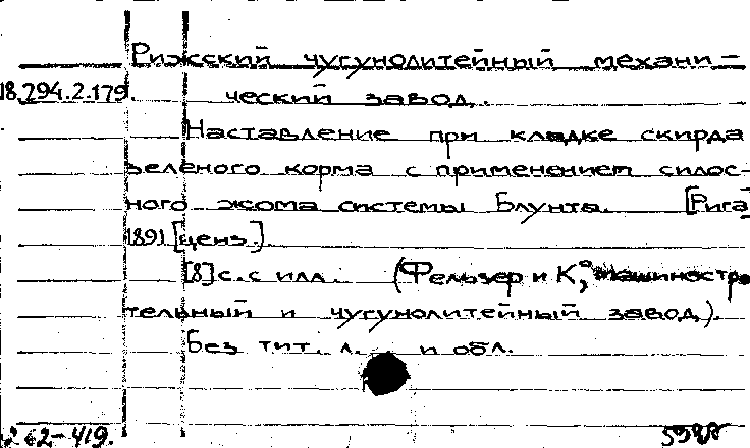 Рижский чугунолитейный механи-
18.294.2.179. ческий завод.
Наставление при кладке скирда
зеленого корма с применением силос-
ного жома системы Блунта. [Рига]
1891 [ценз.].
[8] с. с илл. (Фельзер и К,° машинострои
тельный и чугунолитейный завод).
Без тит. л. и обл.